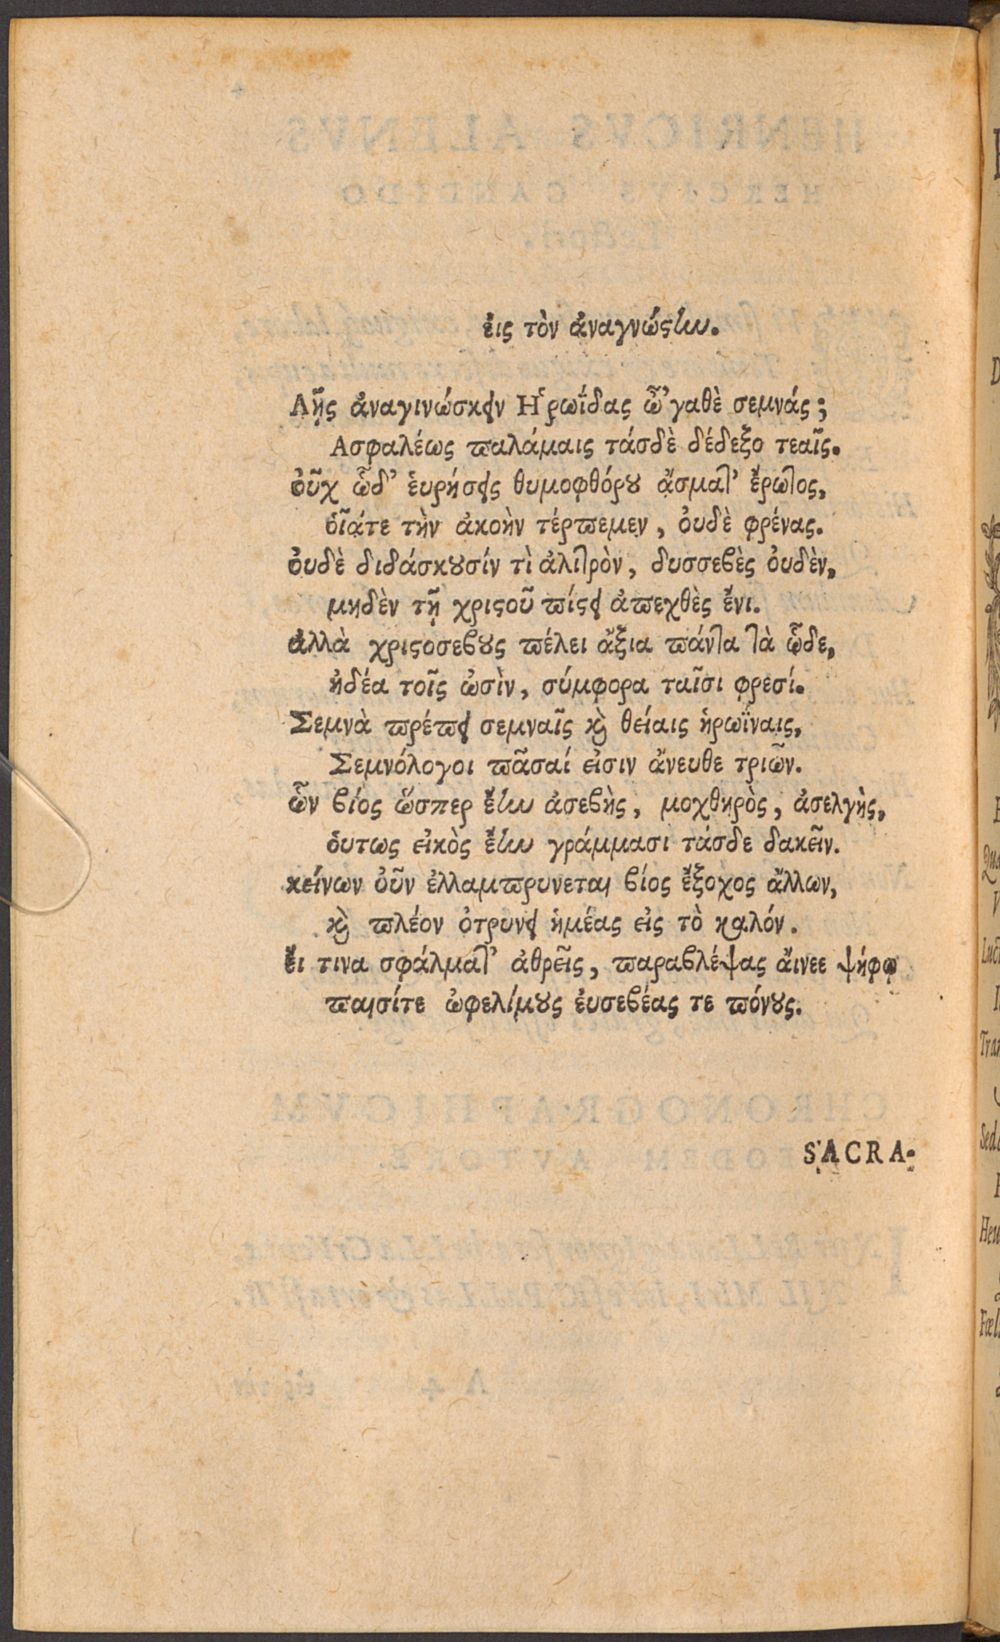 ἐις τὸν ἀναγνώστην.
Λῇς ἀναγινώσκειν Ἡρωΐδας ὦ'γαθὲ σεμνάς;
Ασφαλέως παλάμαις τάσδὲ δέδεξο τεαῖς.
οὖχ ὧδ' ἑυρήσεις θυμοφθόρου ᾄσματ' ἔρωτος,
οἷάτε τὴν ἀκοὴν τέρπεμεν, ὀυδὲ φρένας.
ὀυδὲ διδάσκουσίν τὶ ἀλιτρὸν, δυσσεβὲς ὀυδὲν,
μηδὲν τῇ χριστοῦ πίστει ἀπεχθὲς ἔνι.
ἀλλὰ χριστοσεβους πέλει ἄξια πάντα τὰ ᾧδε,
ἡδέα τοῖς ὠσὶν, σύμφορα ταῖσι φρεσί.
Σεμνὰ πρέπει σεμναῖς καὶ θείαις ἡρωΐναις,
Σεμνόλογοι πᾶσαί εἰσιν ἄνευθε τριῶν.
ὧν βίος ὥσπερ ἔην ἀσεβὴς, μοχθηρὸς, ἀσελγὴς,
ὁυτως εἰκὸς ἔην γράμμασι τάσδε δακεῖν.
κείνων οὖν ἐλλαμπρυνεται βίος ἔξοχος ἄλλων,
καὶ πλέον ὀτρυνει ἡμέας εἰς τὸ καλόν.
ἔι τινα σφάλματ' ἀθρεῖς, παραβλέψας ἄινεε ψήφῳ
παισίτε ὠφελίμους ἐυσεβέας τε πόνους.
SACRA-